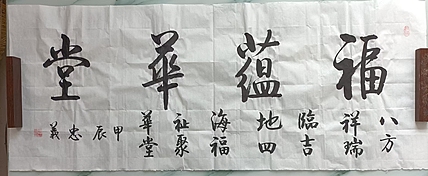 福蘊華堂
八方
祥瑞
臨吉
地四
海福
祉聚
華堂
甲辰忠義